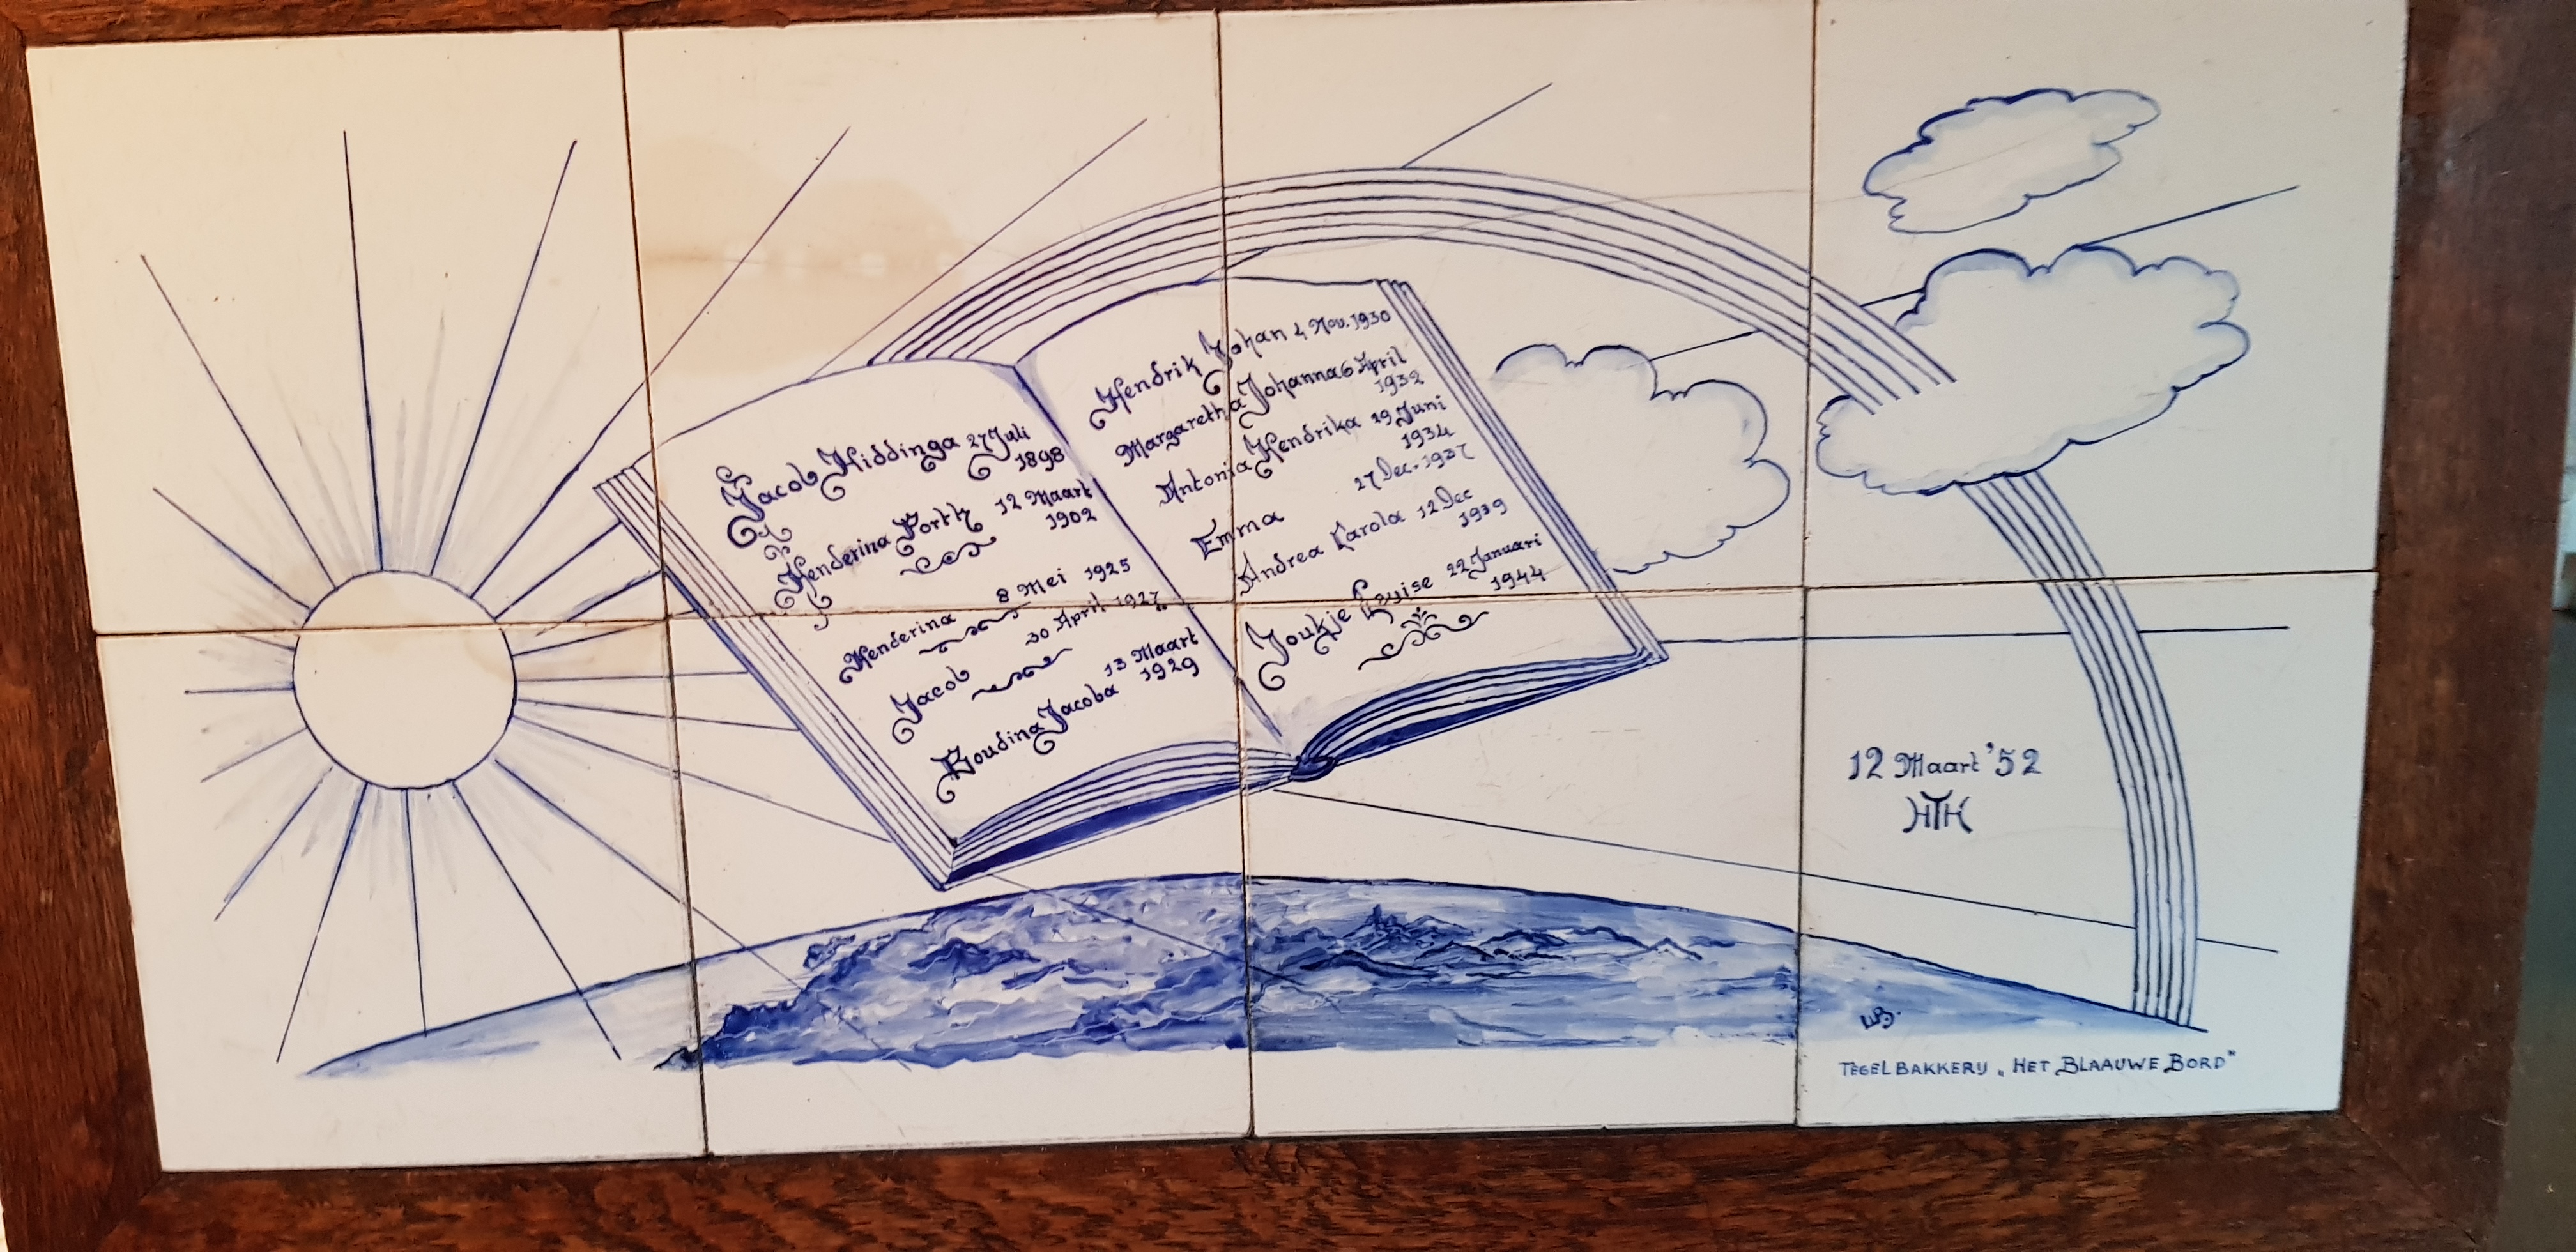 Jacob Hiddinga 27 Juli
1898
Henderina Porth 12 Maart
1902
Henderina 8 Mei 1925
Jacob 30 April 1927
Boudina Jacoba 13 Maart
1929
Hendrik Johan 4 Nov. 1930
Margaretha Johanna 6 April
1932
Antonia Hendrika 29 Juni
1934
Emma 27 Dec. 1937
Andrea Carola 12 Dec
1939
Joukje Louise 22 Januari
1944
12 Maart '52
HTH
WB.
TEGELBAKKERIJ „HET BLAAUWE BORD"